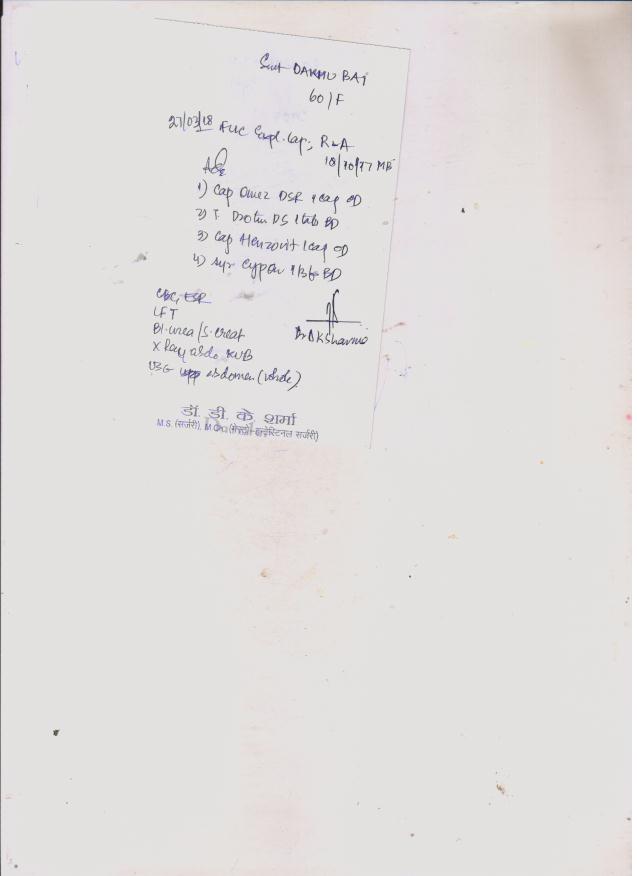 Smt DAKHU BAI
60/F
27/03/18 FUC Expl. Lap;
R L A
18/10/77 MB
Adv
1) Cap Omez DSR 1 cap OD
2) T Drotin DS 1 tab BD
3) Cap 1 cap OD
4) Syr Cypon BD
CBC, ESR
LFT
Bl. urea/S. creat
X Ray abdo KUB
USG abdomen (whole)
Dr D K Sharma
डॉ. डी. के. शर्मा
M.S. (सर्जरी), M.Ch.